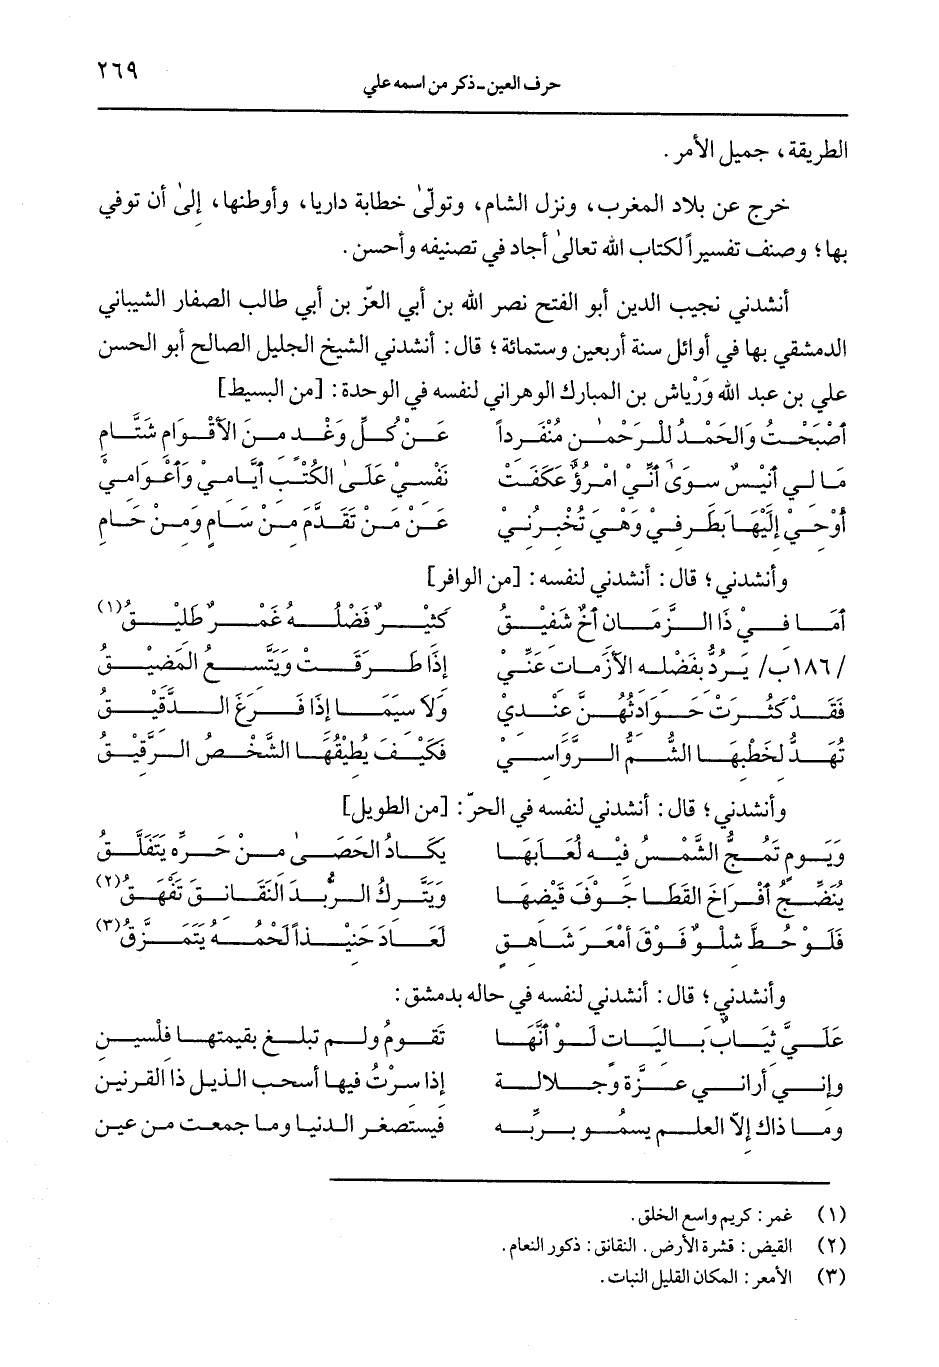 حرف العين - ذكر من اسمه علي ٢٦٩
الطريقة، جميل الأمر.
خرج عن بلاد المغرب، ونزل الشام، وتولّىٰ خطابة داريا، وأوطنها، إلىٰ أن توفي
بها؛ وصنف تفسيراً لكتاب الله تعالىٰ أجاد في تصنيفه وأحسن.
أنشدني نجيب الدين أبو الفتح نصر الله بن أبي العزّ بن أبي طالب الصفار الشيباني
الدمشقي بها في أوائل سنة أربعين وستمائة؛ قال: أنشدني الشيخ الجليل الصالح أبو الحسن
علي بن عبد الله وَرْياش بن المبارك الوهراني لنفسه في الوحدة: [من البسيط]
أَصْبَحْتُ وَالْحَمْدُ لِلرَّحْمٰنِ مُنْفَرِداً عَنْ كُلِّ وَغْدٍ مِنَ الأَقْوَامِ شَتَّامِ
مَا لِي أَنِيْسٌ سِوَىٰ أَنِّي امْرُؤٌ عَكَفَتْ نَفْسِيْ عَلَىٰ الكُتْبِ أَيَّامِيْ وَأَعْوَامِيْ
أَوْحَيْ إِلَيْهَا بِطَرْفِيْ وَهْيَ تُخْبِرُنِيْ عَنْ مَنْ تَقَدَّمَ مِنْ سَامٍ وَمِنْ حَامِ
وأنشدني؛ قال: أنشدني لنفسه: [من الوافر]
أَمَا فِيْ ذَا الزَّمَانِ أَخٌ شَفِيْقُ كَثِيْرٌ فَضْلُهُ غَمْرٌ طَلِيْقُ(١)
/١٨٦ب/ يَرُدُّ بِفَضْلِهِ الأَزَمَاتِ عَنِّيْ إِذَا طَرَقَتْ وَيَتَّسِعُ المَضِيْقُ
فَقَدْ كَثُرَتْ حَوَادِثُهُنَّ عِنْدِيْ وَلاَ سِيَمَا إِذَا فَرَغَ الدَّقِيْقُ
تُهَدُّ لِخَطْبِهَا الشُّمُّ الرَّوَاسِيْ فَكَيْفَ يُطِيْقُهَا الشَّخْصُ الرَّقِيْقُ
وأنشدني؛ قال: أنشدني لنفسه في الحرّ: [من الطويل]
وَيَوْمٍ تَمُجُّ الشَّمْسُ فِيْهِ لُعَابَهَا يَكَادُ الحَصَىٰ مِنْ حَرِّهِ يَتَفَلَّقُ
يُنَضِّجُ أَفْرَاخَ القَطَا جَوْفَ قَيْضِهَا وَيَتْرُكُ الرُّبْدَ النَّقَانِقَ تَفْهَقُ(٢)
فَلَوْ حُطَّ شِلْوٌ فَوْقَ أَمْعَرَ شَاهِقٍ لَعَادَ حَنِيْذاً لَحْمُهُ يَتَمَزَّقُ(٣)
وأنشدني؛ قال: أنشدني لنفسه في حاله بدمشق:
عَلَيَّ ثِيَابٌ بَالِيَاتٌ لَوْ أَنَّهَا تَقُومُ ولم تبلغ بقيمتها فلسين
وإنِي أراني عِزَّةً وجلالة إذا سرْتُ فيها أسحب الذيل ذا القرنين
وما ذاك إلاّ العلم يسمُو بربِّه فيستصغر الدنيا وما جمعت من عين
(١) غمر: كريم واسع الخلق.
(٢) القيض: قشرة الأرض. النقانق: ذكور النعام.
(٣) الأمعر: المكان القليل النبات.